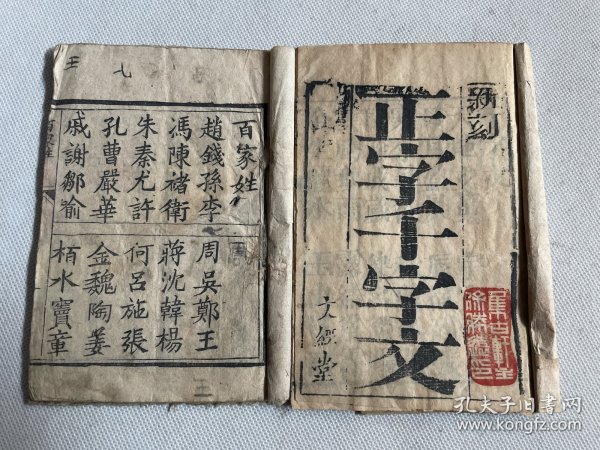 新刻
正字千字文
文經堂
百家姓
趙錢孫李
周吳鄭王
馮陳褚衛
蔣沈韓楊
朱秦尤許
何呂施張
孔曹嚴華
金魏陶姜
戚謝鄒喻
栢水竇章
百家姓
孔夫子旧书网
book.kongfz.com